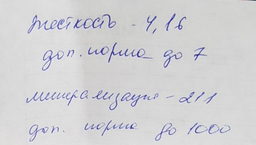 жесткость - 4,16
доп. норма до 7
минерализация - 211
доп. норма до 1000